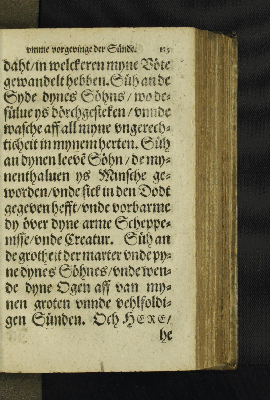 vmme vorgevinge der Sünde. 115
daht/ in welckeren myne Vöte
gewandelt hebben. Süh an de
Syde dynes Söhns/ wo de-
sülue ys dörchgesteken/ vnnde
wasche aff all myne vngerech-
ticheit in mynem herten. Süh
an dynen leeve Söhn/ de my-
nenthaluen ys Minsche ge-
worden/ vnde sick in den Dodt
gegeven hefft/ vnde vorbarme
dy över dyne arme Scheppe-
nisse/ vnde Creatur. Süh an
de grotheit der marter vnde py-
ne dynes Söhnes/ vnde wen-
de dyne Ogen aff van my-
nen groten vnnde vehlfoldi-
gen Sünden. Och HERE/
he